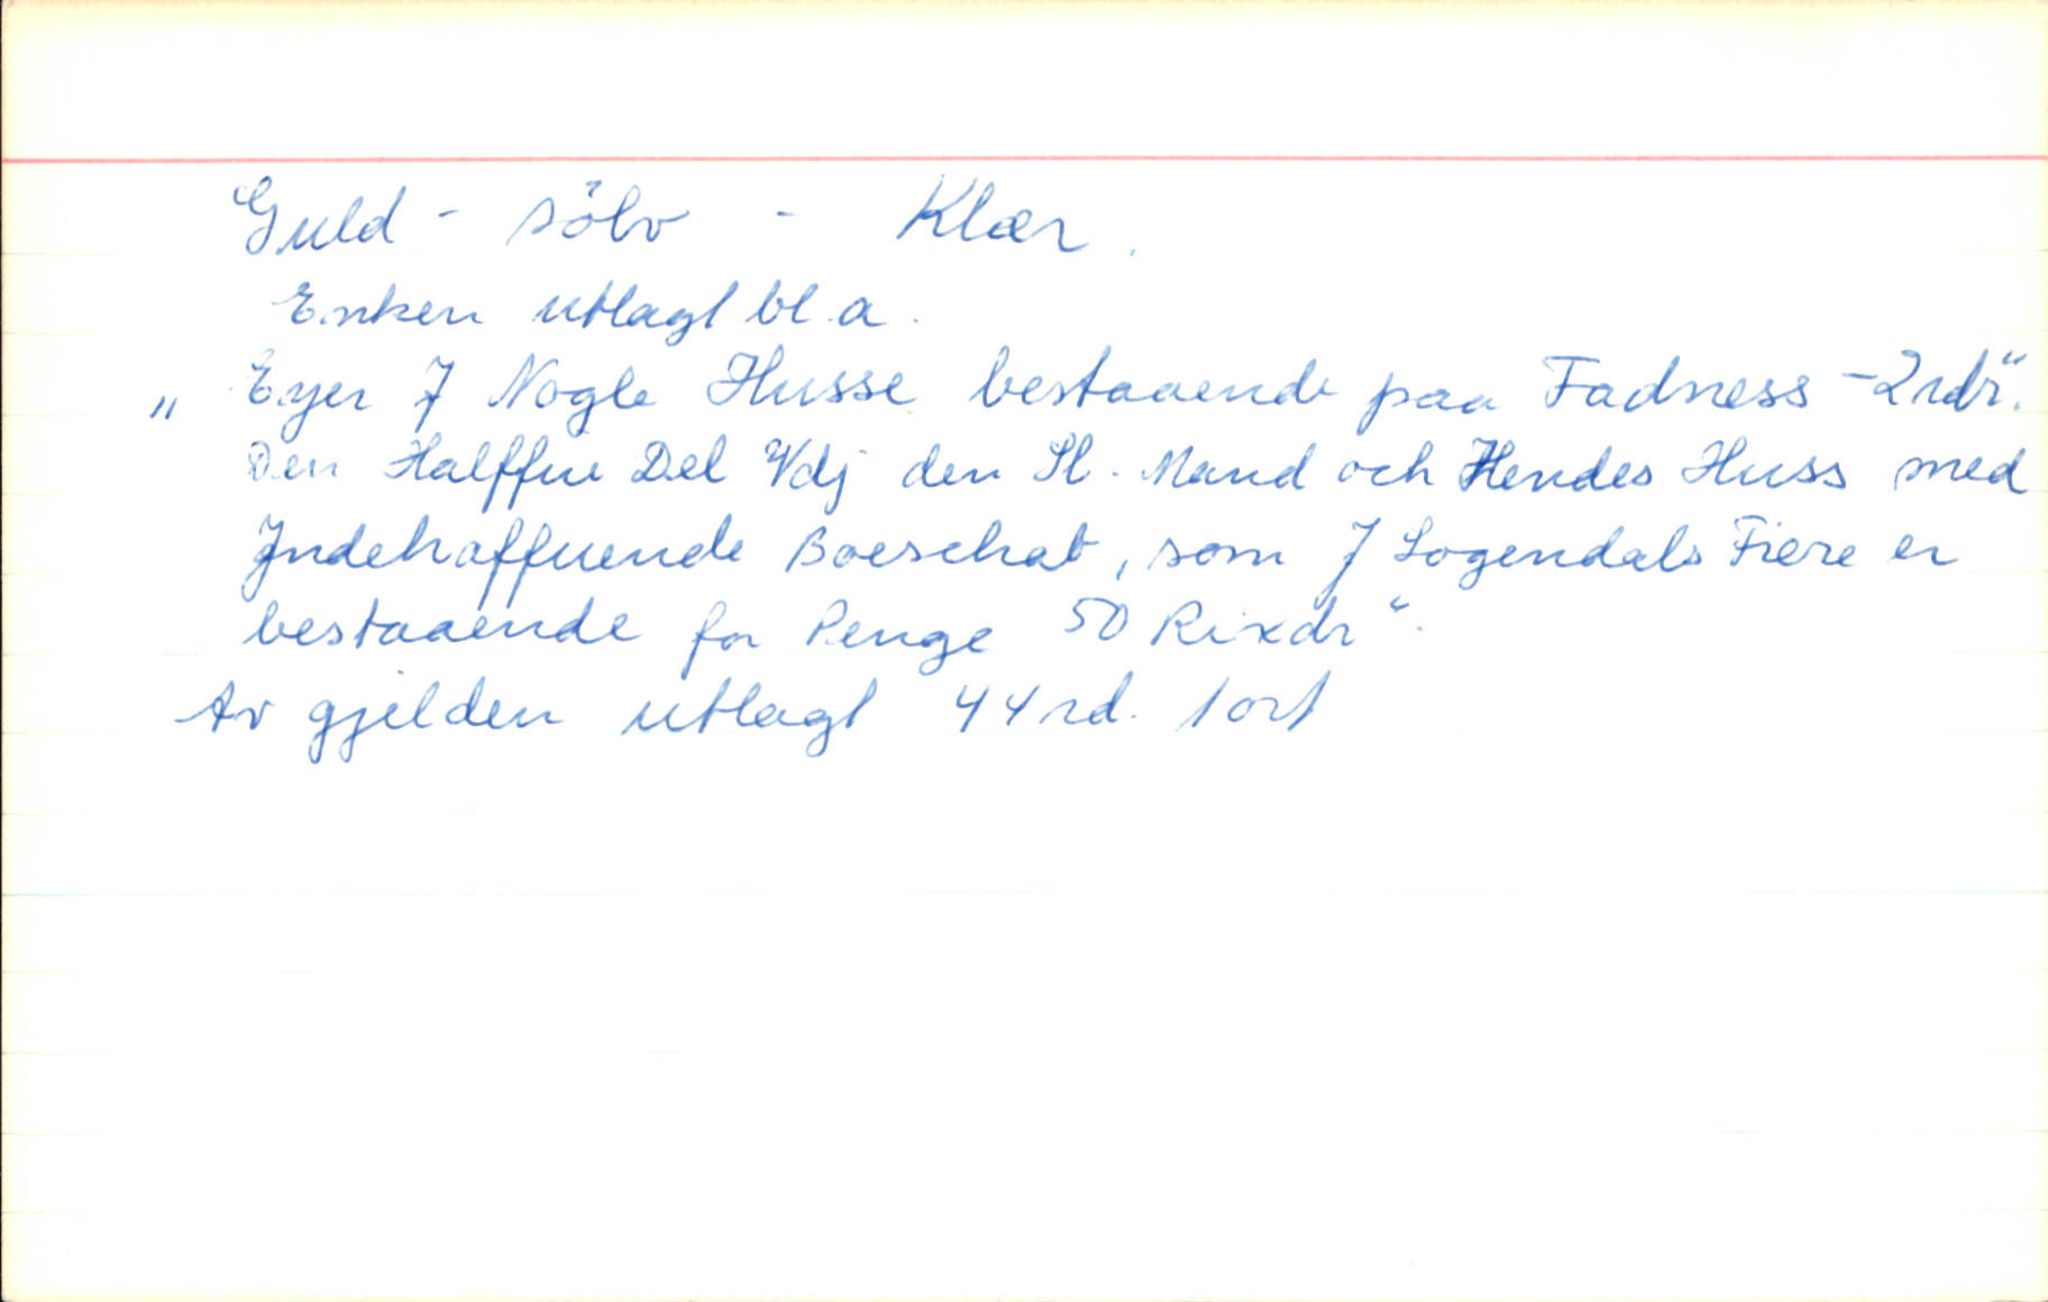 Guld - sölv - Klær.
Enken utlagt bl.a.
„ Eyer J Nogle Husse bestaaende paa Fadness - 2 rdr“.
Den Halffue Del Vdj den Sl. Mand och Hendes Huss med
Jndehaffuende Boeschab, som J Sogendals Fiere er
bestaaende for Penge 50 Rixdr“.
Av gjelden utlagt 44 rd. 1 ort